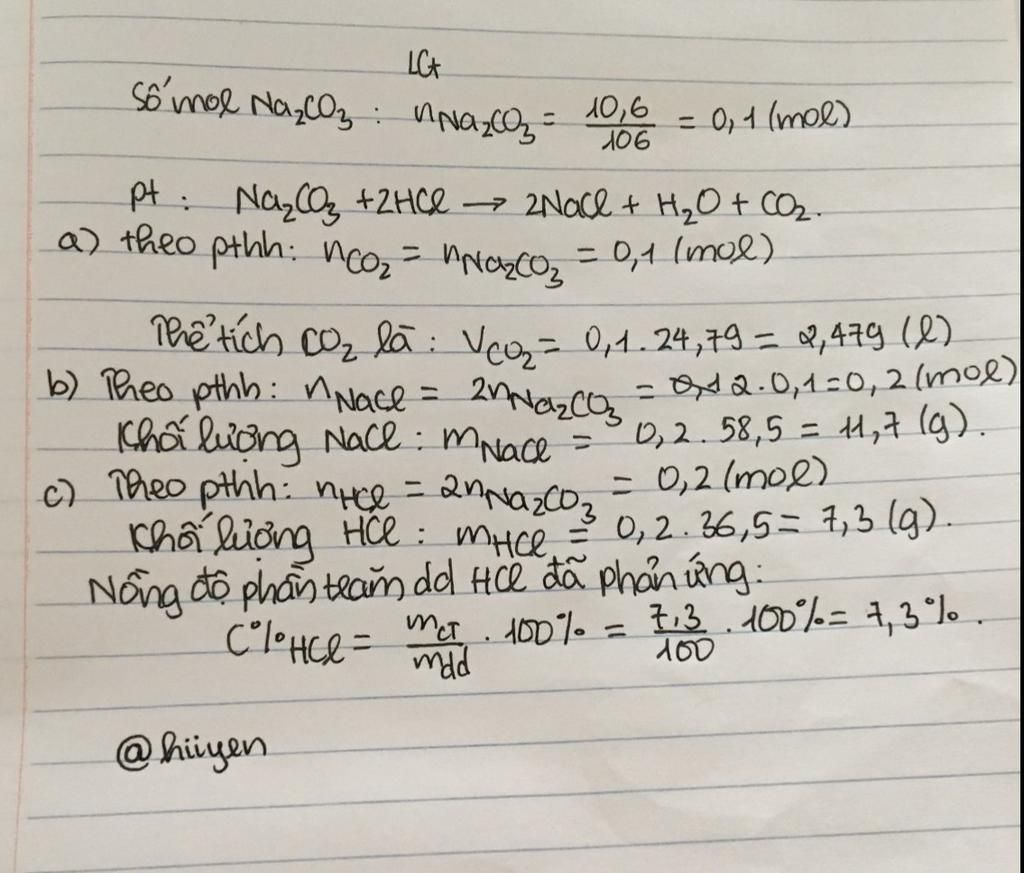 LG+
Số mol Na₂CO₃ : nNa₂CO₃ = 10,6/106 = 0,1 (mol)
pt : Na₂CO₃ + 2HCl → 2NaCl + H₂O + CO₂.
a) theo pthh: nCO₂ = nNa₂CO₃ = 0,1 (mol)
Thể tích CO₂ là : VCO₂ = 0,1 . 24,79 = 2,479 (l)
b) Theo pthh: nNaCl = 2nNa₂CO₃ = 2 . 0,1 = 0,2 (mol)
Khối lượng NaCl : mNaCl = 0,2 . 58,5 = 11,7 (g).
c) Theo pthh: nHCl = 2nNa₂CO₃ = 0,2 (mol)
Khối lượng HCl : mHCl = 0,2 . 36,5 = 7,3 (g).
Nồng độ phần trăm dd HCl đã phản ứng:
C%HCl = mCT/mdd . 100% = 7,3/100 . 100% = 7,3% .
@hiiyen